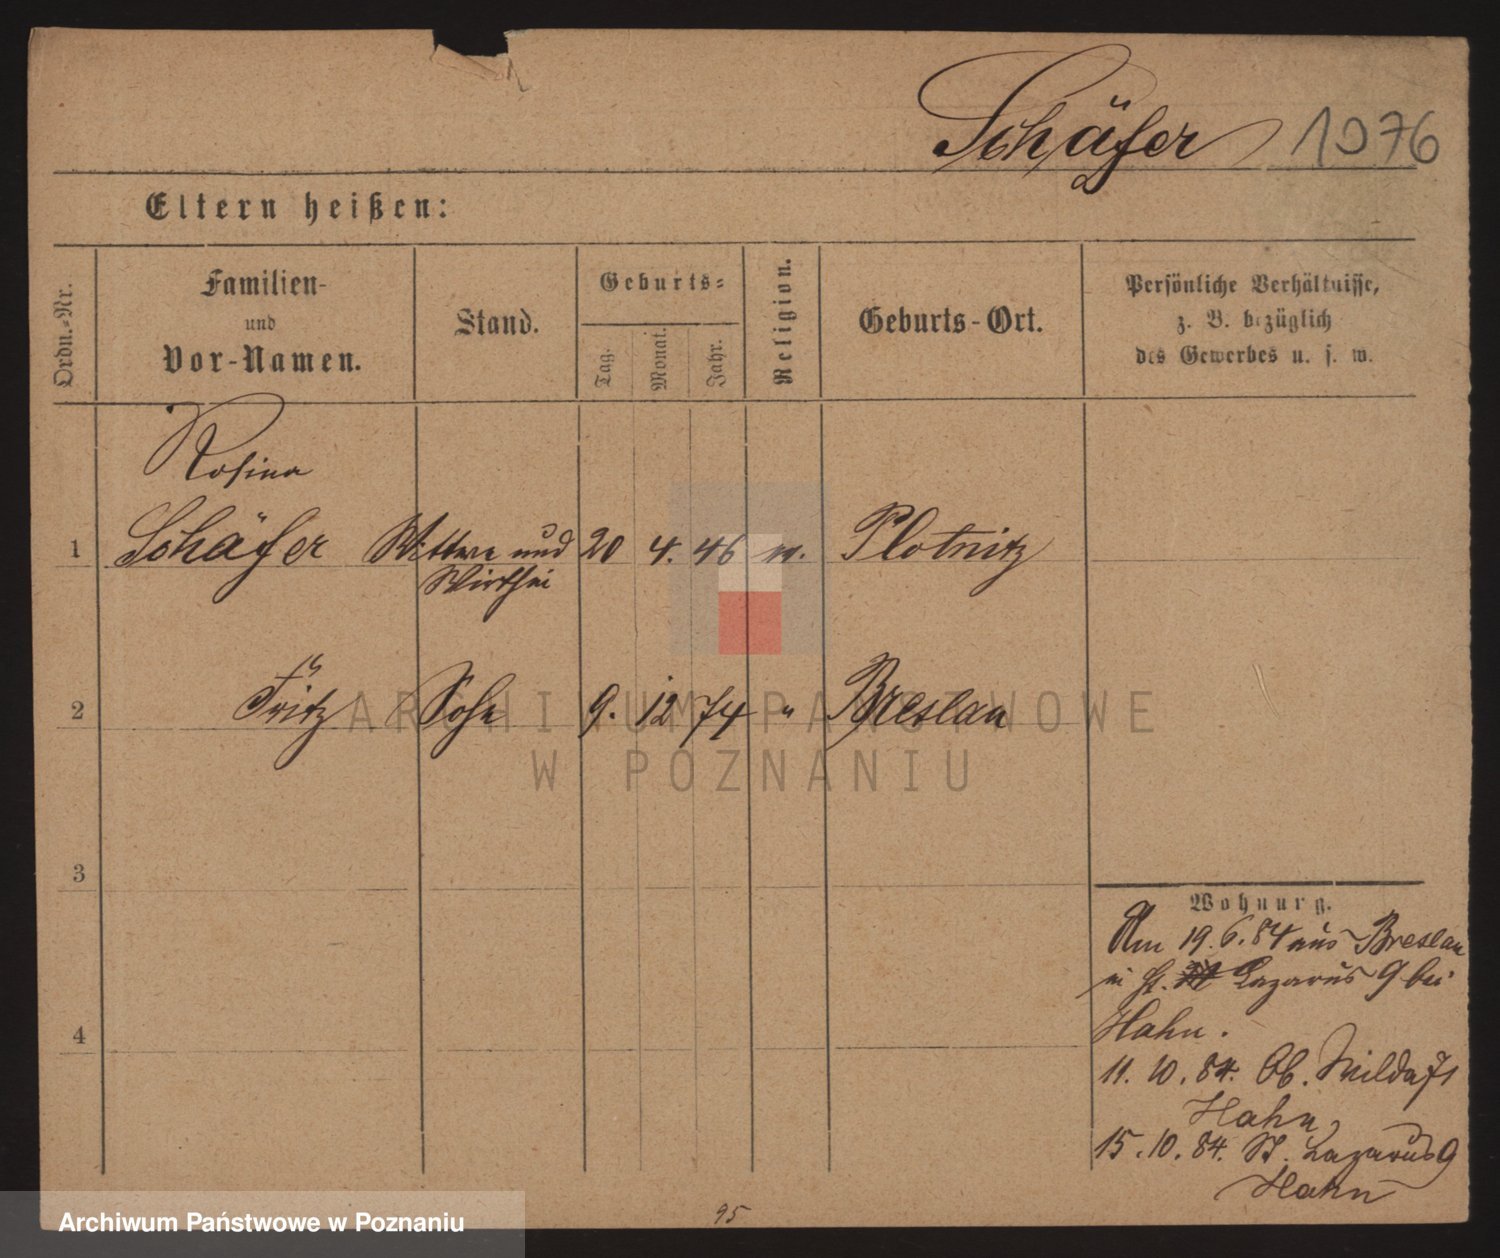 Schäfer 1076
Eltern heißen:
Ordn.-Nr.
Familien-
und
Vor-Namen.
Stand.
Geburts-
Tag.
Monat.
Jahr.
Religion.
Geburts-Ort.
Persönliche Verhältnisse,
z. B. bezüglich
des Gewerbes u. s. w.
Rosina
1 Schäfer Wittwe und 20 4. 46 Plotnitz
2 Fritz Sohn 9. 12 74 " Breslau
3
4
Wohnung.
Am 19.6.84 aus Breslau
in St. Lazarus 9 bei
Hahn.
11.10.84. Ob. Wilda 71
Hahn
15.10.84. St. Lazarus 9
Hahn
95
ARCHIWUM PAŃSTWOWE
W POZNANIU
Archiwum Państwowe w Poznaniu